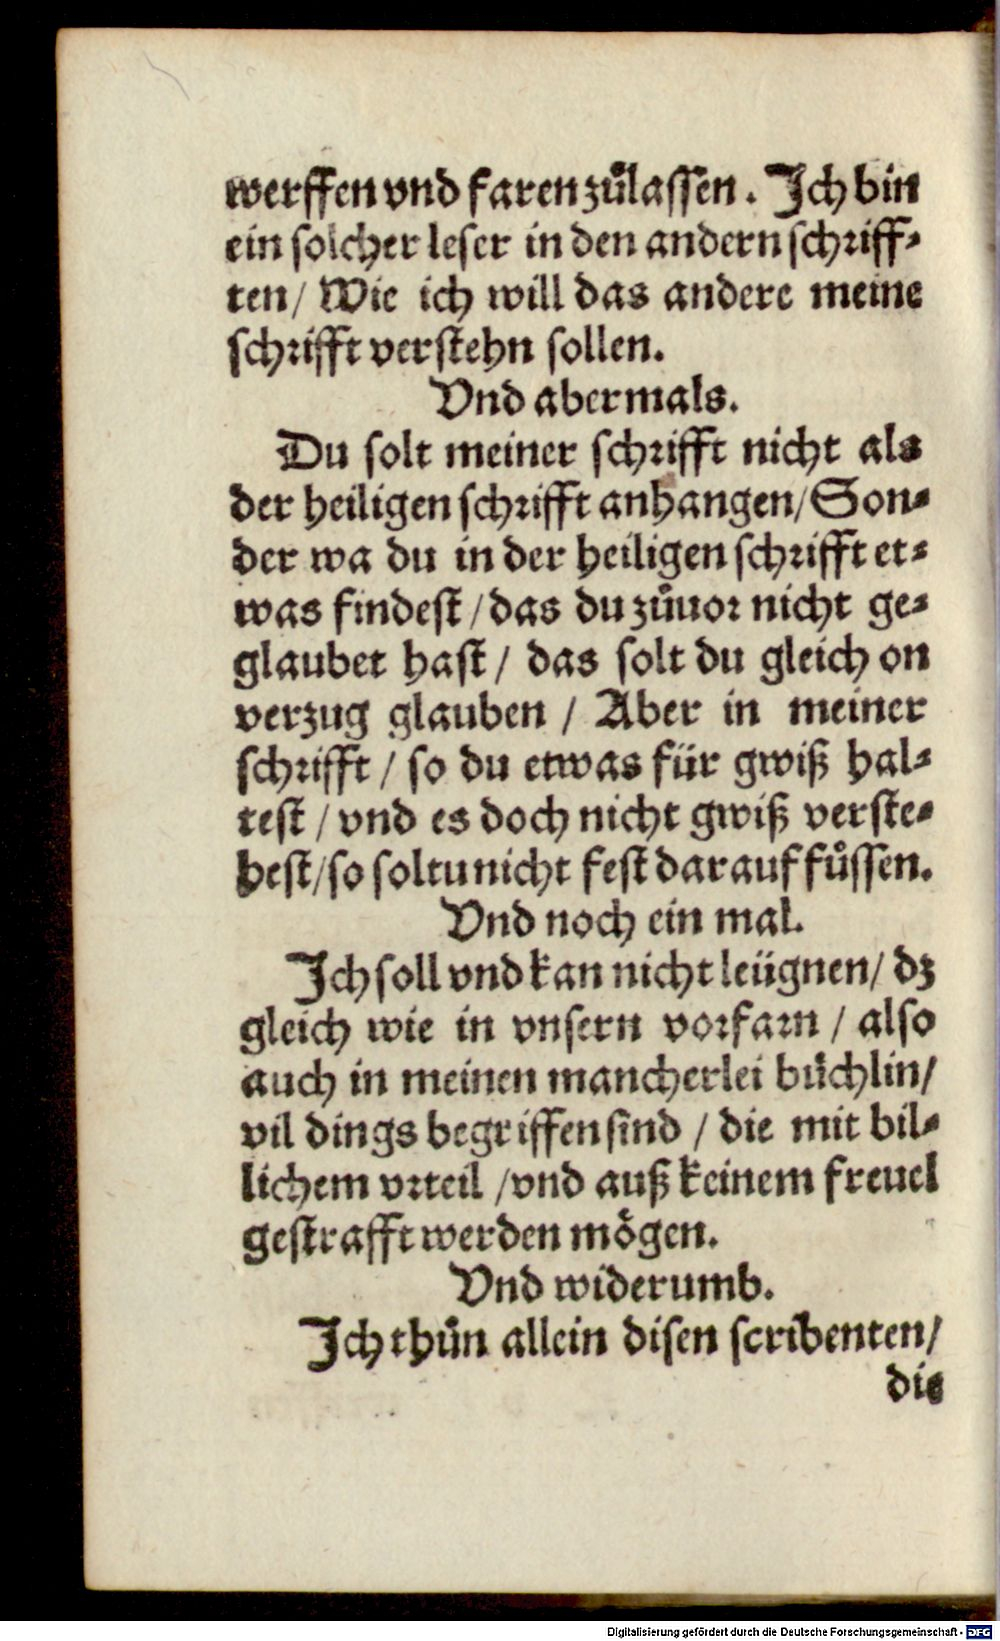 werffen vnd faren zůlassen. Ich bin
ein solcher leser in den andern schriff⸗
ten/ Wie ich will das andere meine
schrifft verstehn sollen.
Vnd abermals.
Du solt meiner schrifft nicht als
der heiligen schrifft anhangen/ Son⸗
der wa du in der heiligen schrifft et⸗
was findest / das du zůuor nicht ge⸗
glaubet hast / das solt du gleich on
verzug glauben / Aber in meiner
schrifft / so du etwas für gwiß hal⸗
test / vnd es doch nicht gwiß verste⸗
hest/ so soltu nicht fest darauf fůssen.
Vnd noch ein mal.
Ich soll vnd kan nicht leügnen/ dz
gleich wie in vnsern vorfarn / also
auch in meinen mancherlei bůchlin/
vil dings begriffen sind / die mit bil⸗
lichem vrteil / vnd auß keinem freuel
gestrafft werden mögen.
Vnd widerumb.
Ich thůn allein disen scribenten/
die
Digitalisierung gefördert durch die Deutsche Forschungsgemeinschaft - DFG